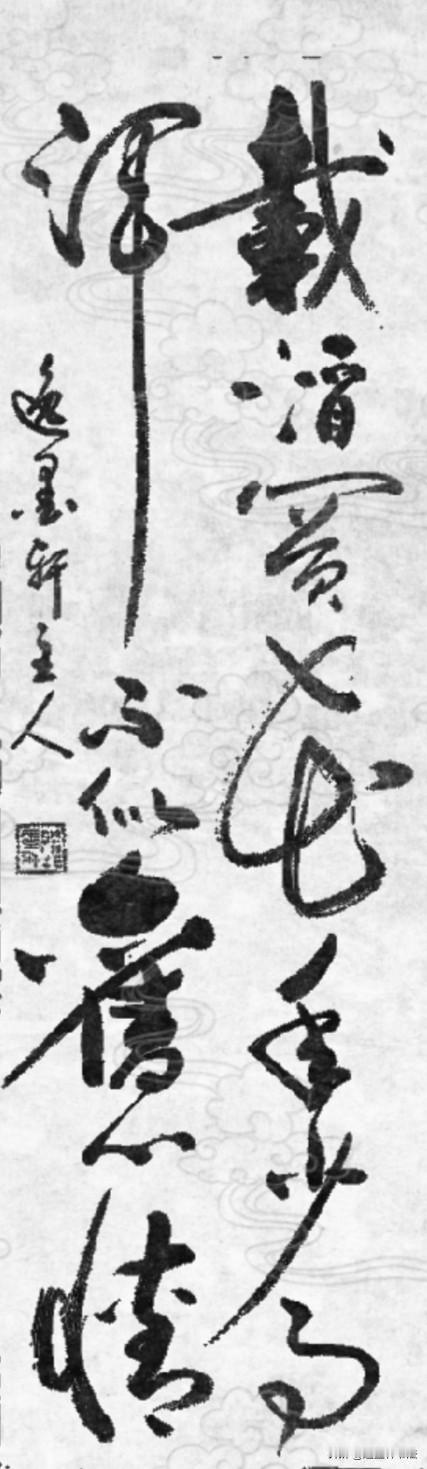 載酒買花年少事
渾不似舊心情
逸墨軒主人